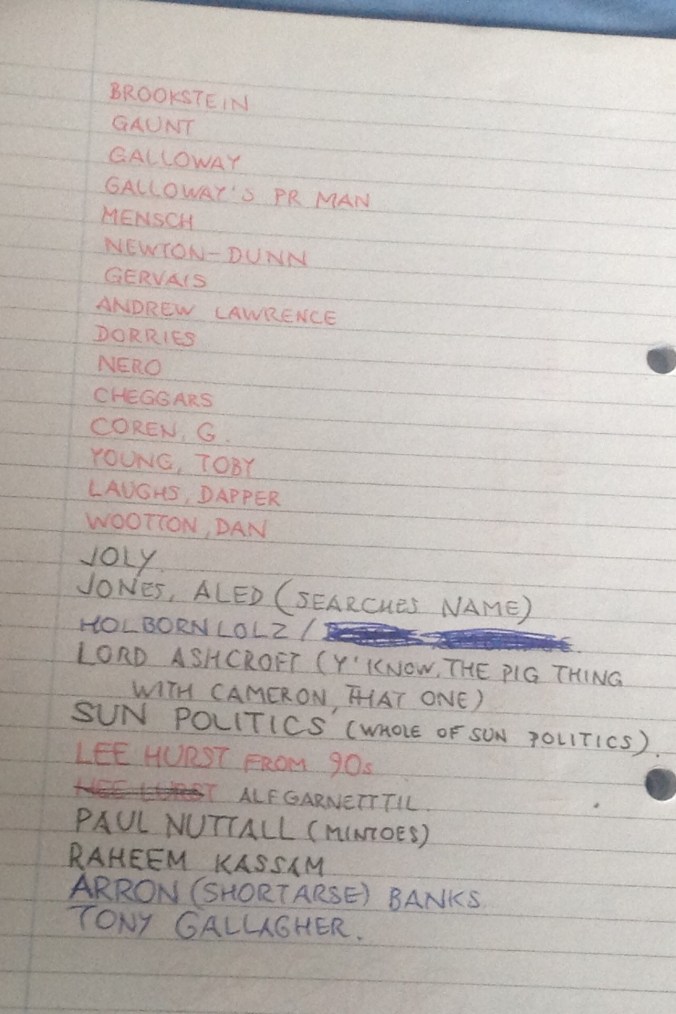 BROOKSTEIN
GAUNT
GALLOWAY
GALLOWAY'S PR MAN
MENSCH
NEWTON-DUNN
GERVAIS
ANDREW LAWRENCE
DORRIES
NERO
CHEGGARS
COREN, G.
YOUNG, TOBY
LAUGHS, DAPPER
WOOTTON, DAN
JOLY.
JONES, ALED (SEARCHES NAME)
HOLBORNLOLZ /
LORD ASHCROFT (Y'KNOW, THE PIG THING
WITH CAMERON, THAT ONE)
SUN POLITICS (WHOLE OF SUN POLITICS).
LEE HURST FROM 90s
ALFGARNETTTIL.
PAUL NUTTALL (MINTOES)
RAHEEM KASSAM
ARRON (SHORTARSE) BANKS
TONY GALLAGHER.